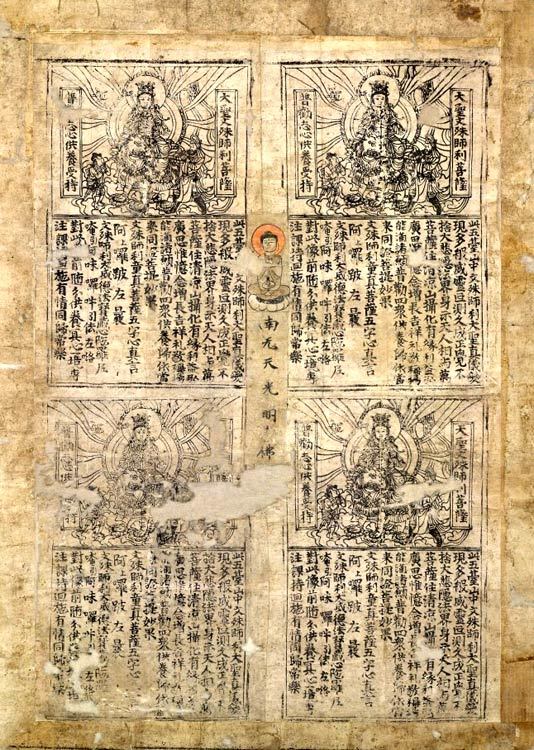 大聖文殊師利菩薩
普勸志心供養受持
此五臺山中文殊師利大聖真儀變
現多般威靈叵測久成正覺不
捨大悲隱法界身示天人相與萬
菩薩住清涼山攝化有緣利益弘
廣思惟憶念增長吉祥禮敬稱揚
能滿諸願普勸四眾供養歸依當
來同證菩提妙果
文殊師利童真菩薩五字心真言
阿上囉跛左曩
文殊師利大威德法寶藏心陀羅尼
唵引阿味囉吽引佉左
對此像前隨分供養冥心專
注課持迴施有情同歸常樂
南无天光明佛
大聖文殊師利菩薩
普勸志心供養受持
此五臺山中文殊師利大聖真儀變
現多般威靈叵測久成正覺不
捨大悲隱法界身示天人相與萬
菩薩住清涼山攝化有緣利益弘
廣思惟憶念增長吉祥禮敬稱揚
能滿諸願普勸四眾供養歸依當
來同證菩提妙果
文殊師利童真菩薩五字心真言
阿上囉跛左曩
文殊師利大威德法寶藏心陀羅尼
唵引阿味囉吽引佉左
對此 前隨分供養冥心專
注課持迴施有情同歸常樂
大聖文殊師利菩薩
普勸志心供養受持
此五臺山中文殊師利大聖真儀變
現多般威靈叵測久成正覺不
捨大悲隱法界身示天人相與萬
菩薩住清涼山攝化有緣利益弘
廣思惟憶念增長吉祥禮敬稱揚
能滿諸願普勸四眾供養歸依當
來同證菩提妙果
文殊師利童真菩薩五字心真言
阿上囉跛左曩
文殊師利大威德法寶藏心陀羅尼
唵引阿味囉吽引佉左
對此像前隨分供養冥心專
注課持迴施有情同歸常樂
普勸志心 受持
此五臺山中文殊師利大聖真儀變
現多般威靈叵測久成正覺不
捨大悲隱法界身示天人相與萬
菩薩住清涼山攝化有緣利
思惟憶念增長吉祥禮敬稱揚
能滿諸願普勸四眾供養歸依當
來同證菩提妙果
文殊師利童真菩薩五字心真言
阿上囉跛左曩
文殊師利大威德法寶藏心陀羅尼
唵引阿味囉吽引佉左
對此像前隨分供養冥心專
注課持迴施有情同歸常樂